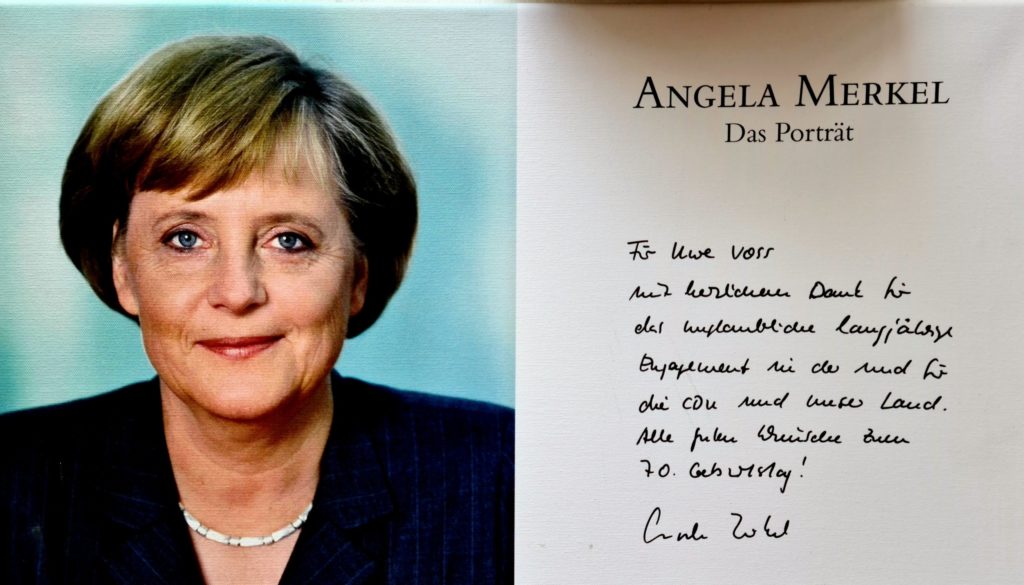 ANGELA MERKEL
Das Porträt
Für Uwe Voss
mit herzlichem Dank für
das unglaubliche langjährige
Engagement in der und für
die CDU und unser Land.
Alle guten Wünsche zum
70. Geburtstag!
Angela Merkel